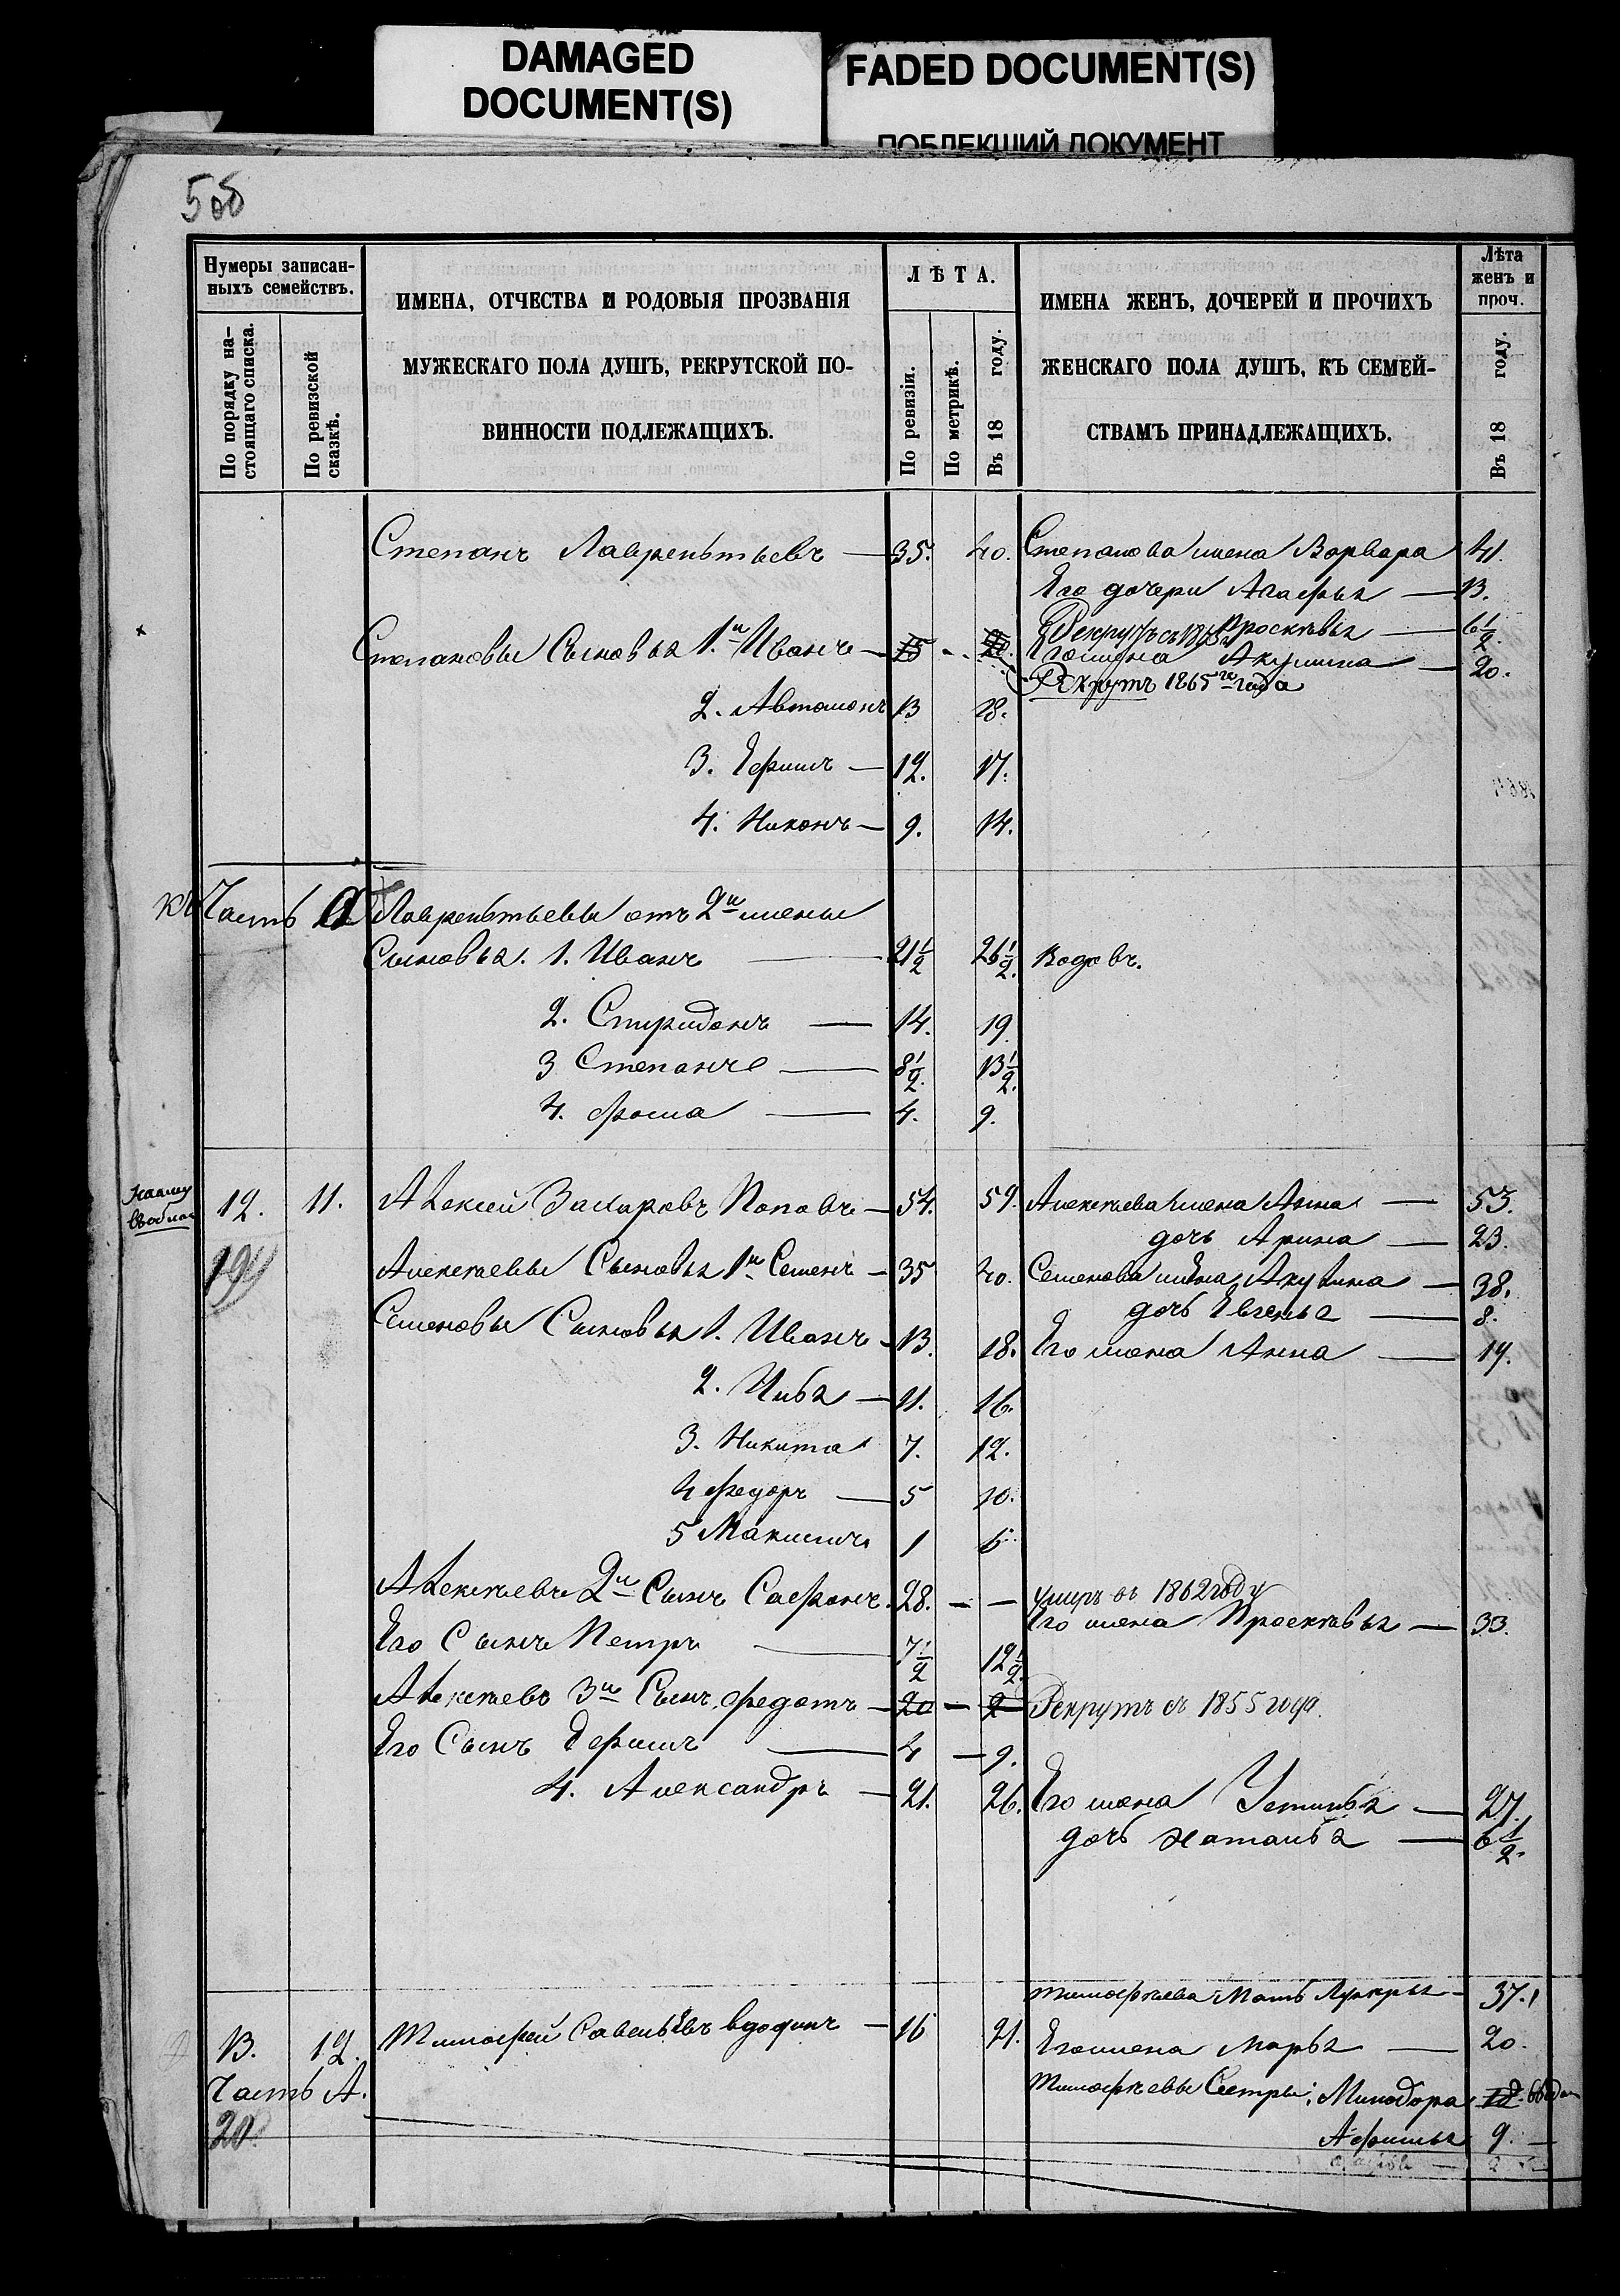 DAMAGED
DOCUMENT(S)
FADED DOCUMENT(S)
ПОБЛЕКШИЙ ДОКУМЕНТ
Нумеры записан-
ныхъ семействъ.
По порядку на-
стоящаго списка.
По ревизской
сказкѣ.
ИМЕНА, ОТЧЕСТВА И РОДОВЫЯ ПРОЗВАНІЯ
МУЖЕСКАГО ПОЛА ДУШЪ, РЕКРУТСКОЙ ПО-
ВИННОСТИ ПОДЛЕЖАЩИХЪ.
ЛѢТА.
По ревизіи.
По метрикѣ.
Въ 18 году.
ИМЕНА ЖЕНЪ, ДОЧЕРЕЙ И ПРОЧИХЪ
ЖЕНСКАГО ПОЛА ДУШЪ, КЪ СЕМЕЙ-
СТВАМЪ ПРИНАДЛЕЖАЩИХЪ.
Лѣта
женъ и
проч.
Въ 18 году.
Степанъ Лаврентьевъ — 35. 40. Степанова жена Варвара 41.
Его дочери Агафья — 13.
Просковья — 6 1/2
Степановы Сыновья 1й Иванъ — 15 20. Его жена Акулина — 20.
Рекрутъ 1865го года
2. Автомонъ 13 18.
3. Ефимъ — 12. 17.
4. Никонъ — 9. 14.
Часть А Лаврентьевы отъ 2й жены
Сыновья. 1. Иванъ — 21 1/2 26 1/2 Вдовъ.
2. Спиридонъ — 14. 19.
3 Степанъ — 8 1/2 13 1/2.
4. Фома — 4. 9.
12. 11. Алексей Захаровъ Поповъ — 54. 59. Алексеева жена Анна — 53.
дочь Арина — 23.
19
Алексеевы Сыновья 1й Семенъ — 35 40. Семенова жена Акулина — 38.
дочь Евгенья — 8.
Семеновы Сыновья 1. Иванъ — 13. 18. Его жена Анна — 19.
2. Илья — 11. 16.
3. Никита 7. 12.
4 Федоръ — 5 10.
5 Максимъ 1 6.
Алексеевъ 2й Сынъ Сафонъ. 28. — — умеръ въ 1862 году
Его жена Просковья — 33.
Его Сынъ Петръ — 7 1/2 12 1/2.
Алексеевъ 3й Сынъ Федотъ — 20 — 2 Рекрутъ съ 1855 года.
Его Сынъ Ефимъ — 4 — 9.
4. Александръ — 21. 26. Его жена Устинья — 27.
дочь Наталья — 6 1/2.
Тимофеева Мать Лукерья — 37.
13. 12. Тимофей Савельевъ — 16 21. Его жена Марья — 20.
Часть А.
20
Тимофеевы Сестры: Минодора
Афимья 9. —